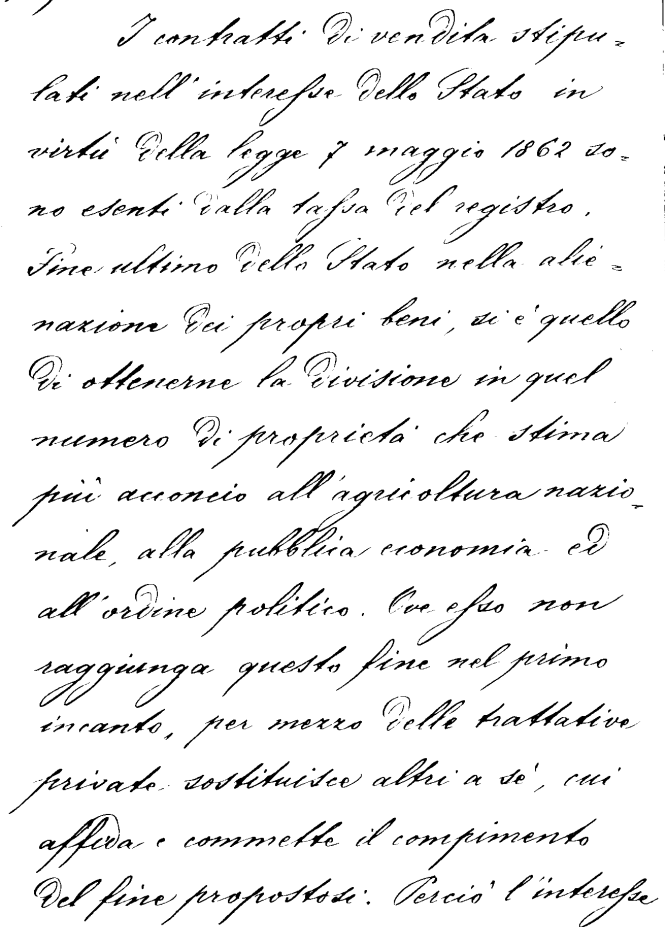 I contratti di vendita stipu=
lati nell'interesse dello Stato in
virtù della legge 7 maggio 1862 so=
no esenti dalla tassa del registro.
Fine ultimo dello Stato nella alie=
nazione dei propri beni, si è quello
di ottenerne la divisione in quel
numero di proprietà che stima
più acconcio all'agricoltura nazio=
nale, alla pubblica economia ed
all'ordine politico. Ove esso non
raggiunga questo fine nel primo
incanto, per mezzo delle trattative
private sostituisce altri a sé, cui
affida e commette il compimento
del fine propostosi. Perciò l'interesse